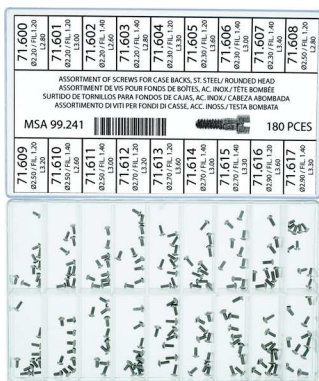 71.600
Ø2.20 / FIL. 1.20
L2.80
71.601
Ø2.20 / FIL. 1.20
L3.00
71.602
Ø2.20 / FIL. 1.40
L2.80
71.603
Ø2.20 / FIL. 1.40
L3.00
71.604
Ø2.30 / FIL. 1.20
L3.30
71.605
Ø2.30 / FIL. 1.20
L3.60
71.606
Ø2.30 / FIL. 1.40
L3.00
71.607
Ø2.30 / FIL. 1.40
L3.30
71.608
Ø2.50 / FIL. 1.20
L2.80
ASSORTMENT OF SCREWS FOR CASE BACKS, ST. STEEL/ ROUNDED HEAD
ASSORTIMENT DE VIS POUR FONDS DE BOÎTES, AC. INOX./ TÊTE BOMBÉE
SURTIDO DE TORNILLOS PARA FONDOS DE CAJAS, AC. INOX./ CABEZA ABOMBADA
ASSORTIMENTO DI VITI PER FONDI DI CASSE, ACC. INOSS./ TESTA BOMBATA
MSA 99.241
180 PCES
71.609
Ø2.50 / FIL. 1.20
L3.20
71.610
Ø2.50 / FIL. 1.40
L3.00
71.611
Ø2.60 / FIL. 1.40
L3.00
71.612
Ø2.70 / FIL. 1.20
L3.20
71.613
Ø2.70 / FIL. 1.20
L3.60
71.614
Ø2.70 / FIL. 1.40
L3.00
71.615
Ø2.70 / FIL. 1.40
L3.30
71.616
Ø2.90 / FIL. 1.20
L3.60
71.617
Ø2.90 / FIL. 1.40
L3.30